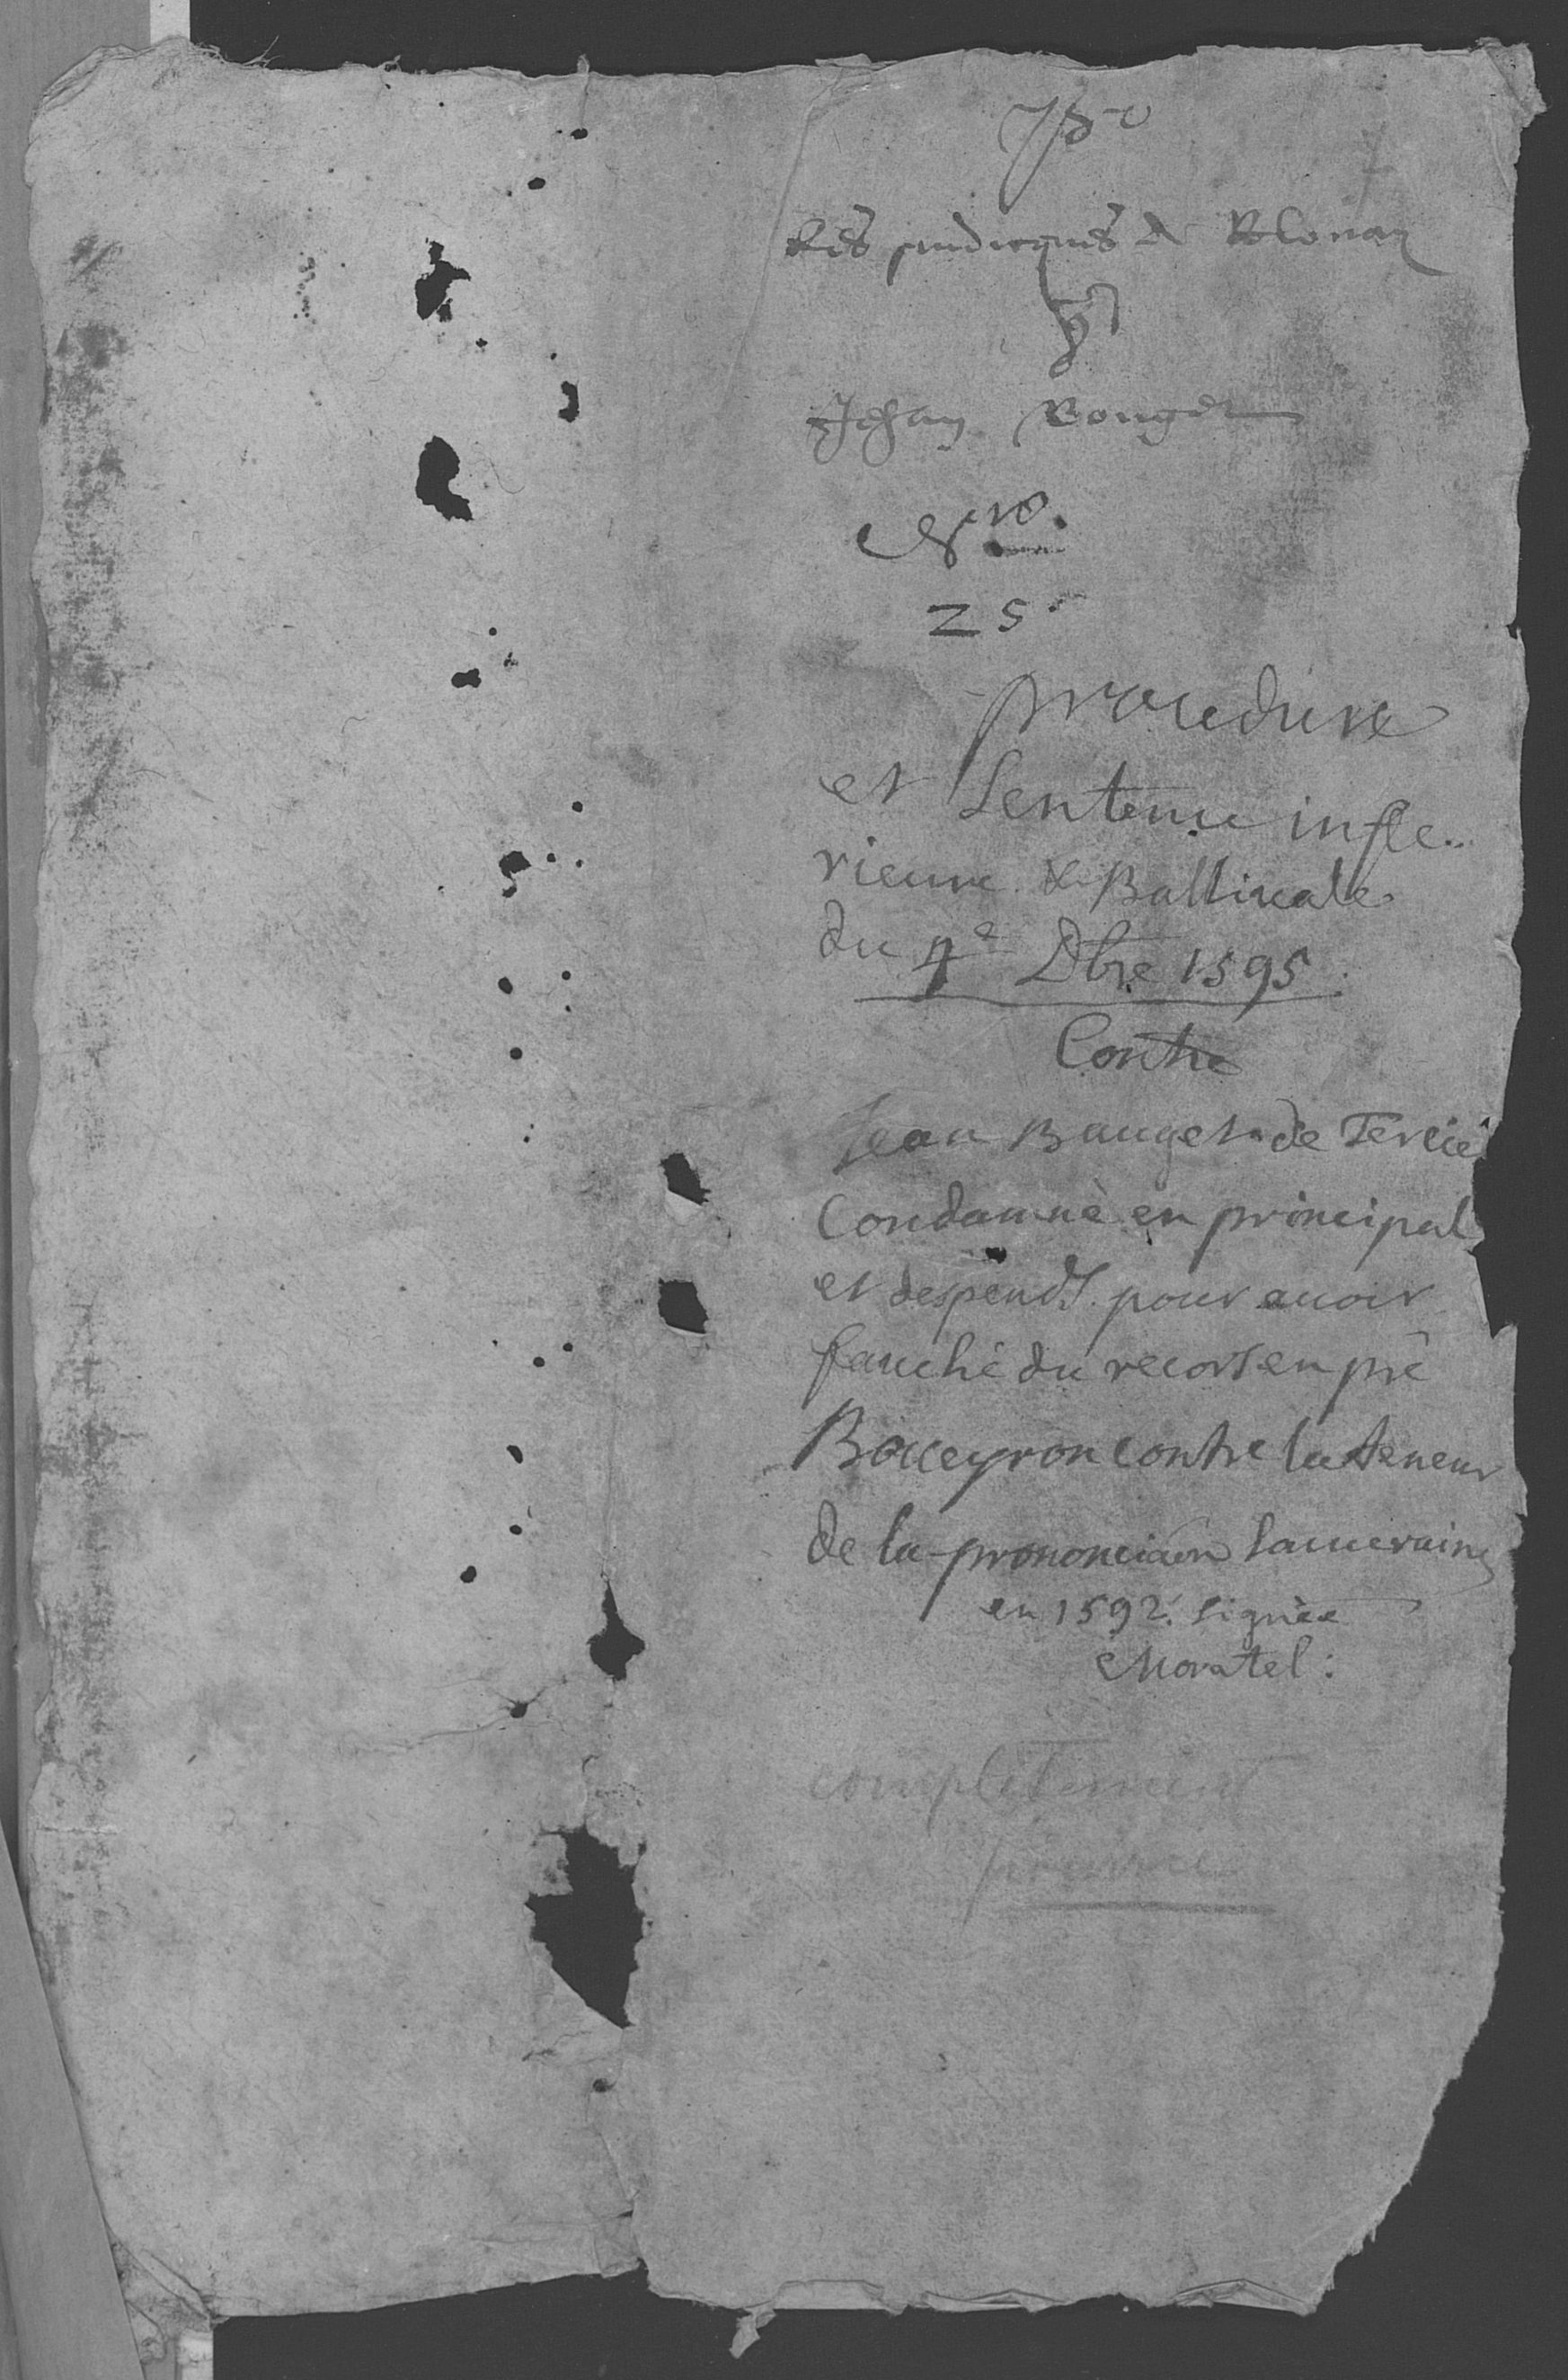 Les sindicques de Blonay
Jehan Bouget
N.ro
25
procedure
et Sentence infe..
rieure & Ballivale
du 4e Dbre 1595
Contre
Jean Bauget de Tercié
Condamné en principal
et despends. pour avoir
fauché du recort en pré
Boueyron contre la teneur
de la prononciaon souveraine
en 1592. signée
Moratel :
completement